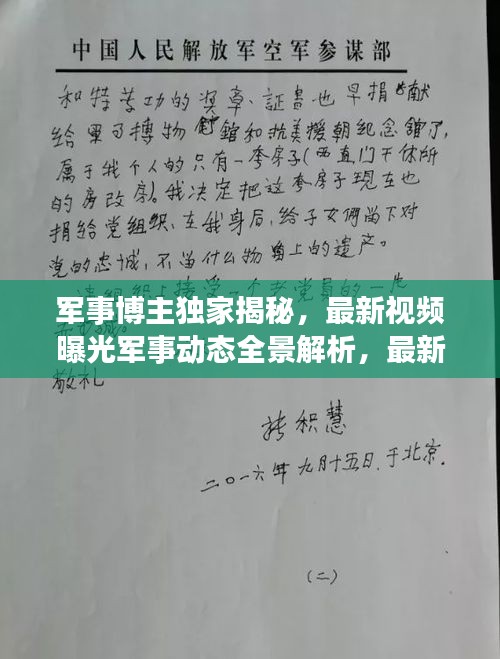 中国人民解放军空军参谋部
和特等功的奖章、証書也早捐献
给军事博物館和抗美援朝纪念館了，
属于我个人的只有一套房子(西直门干休所
的房改房)。我决定把这套房子现在也
捐给党组织，在我身后，给子女們留下对
党的忠诚，不当什么物資上的遗产。
请组织上接受一个老党员的一片
军事博主独家揭秘，最新视频
曝光军事动态全景解析，最新
敬礼
积慧
二〇一六年九月十五日，于北京.
(二)